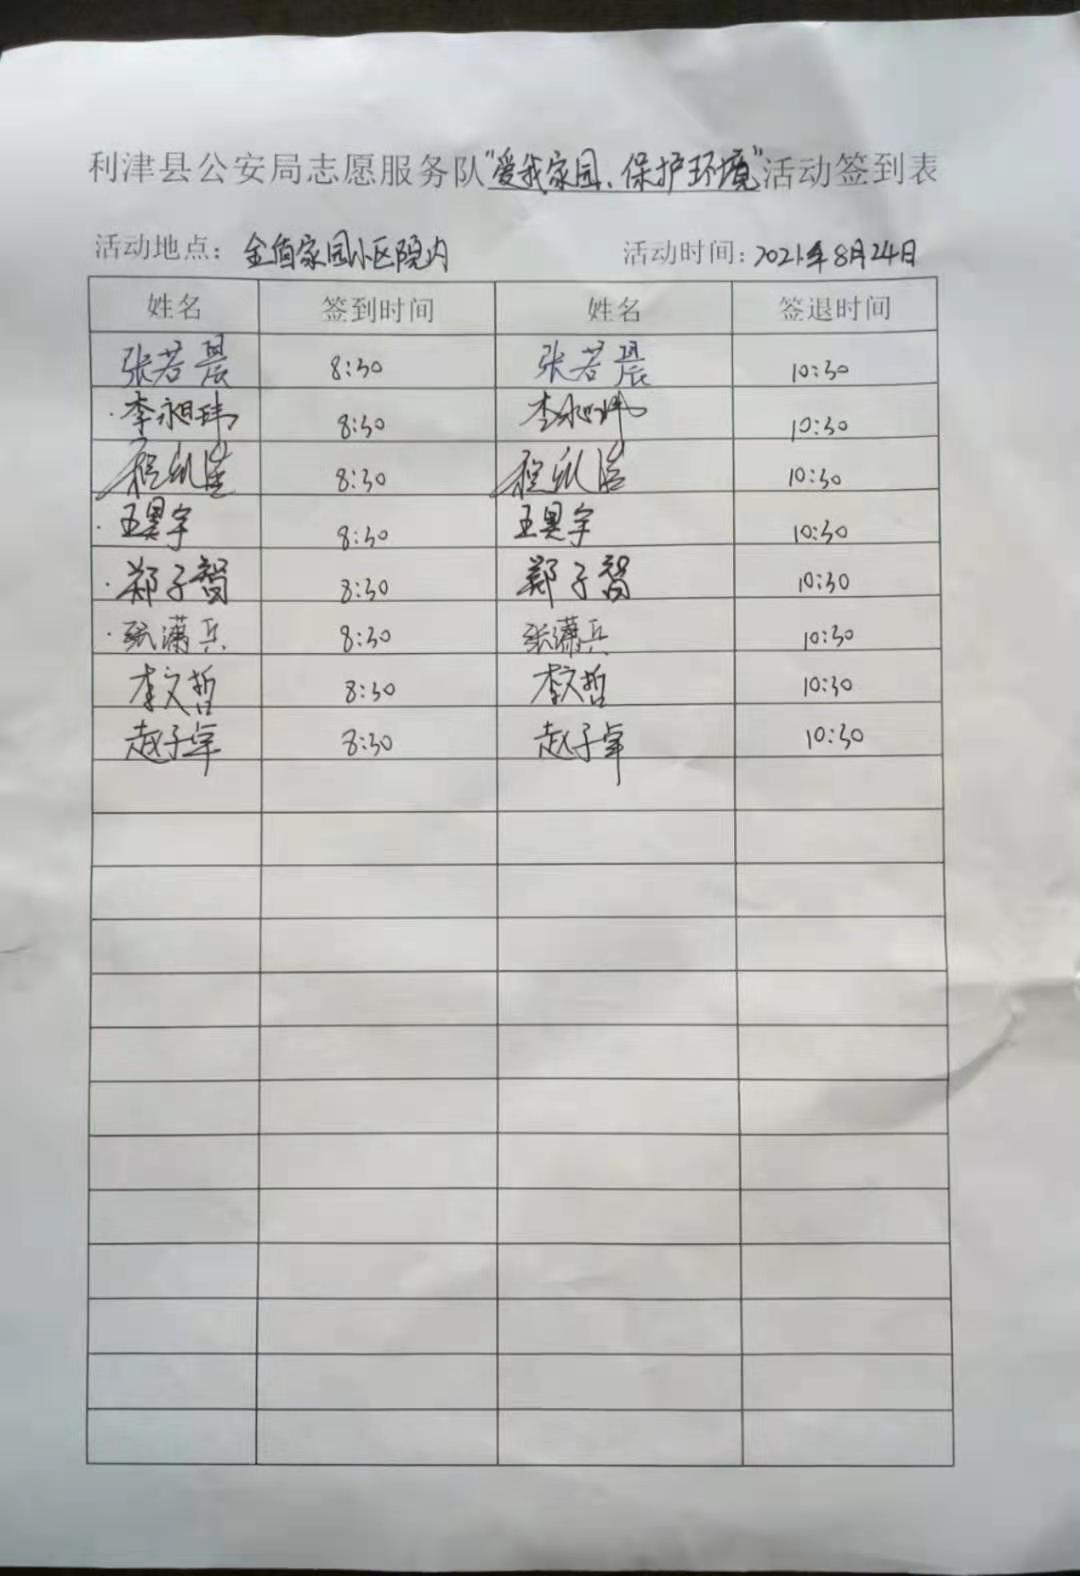 利津县公安局志愿服务队"爱我家园、保护环境"活动签到表
活动地点：金盾家园小区院内 活动时间：2021年8月24日
姓名 签到时间 姓名 签退时间
张若晨 8:30 张若晨 10:30
李昶玮 8:30 李昶玮 10:30
8:30 10:30
王昊宇 8:30 王昊宇 10:30
郑子智 8:30 郑子智 10:30
张潇兵 8:30 张潇兵 10:30
李文哲 8:30 李文哲 10:30
赵子卓 8:30 赵子卓 10:30